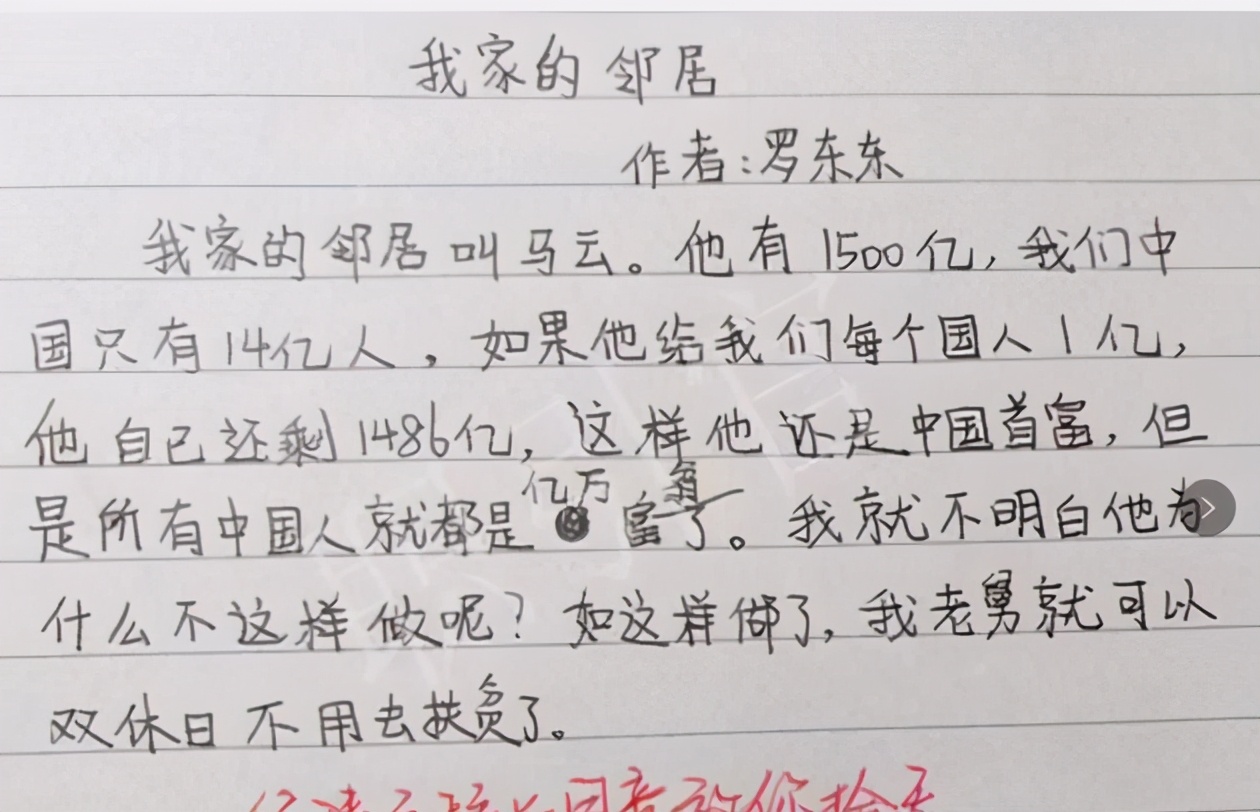 我家的邻居
作者:罗东东
我家的邻居叫马云。他有1500亿,我们中
国只有14亿人,如果他给我们每个国人1亿,
他自己还剩1486亿,这样他还是中国首富,但
亿万 翁
是所有中国人就都是富了。我就不明白他为
什么不这样做呢?如这样做了,我老舅就可以
双休日不用去扶贫了。